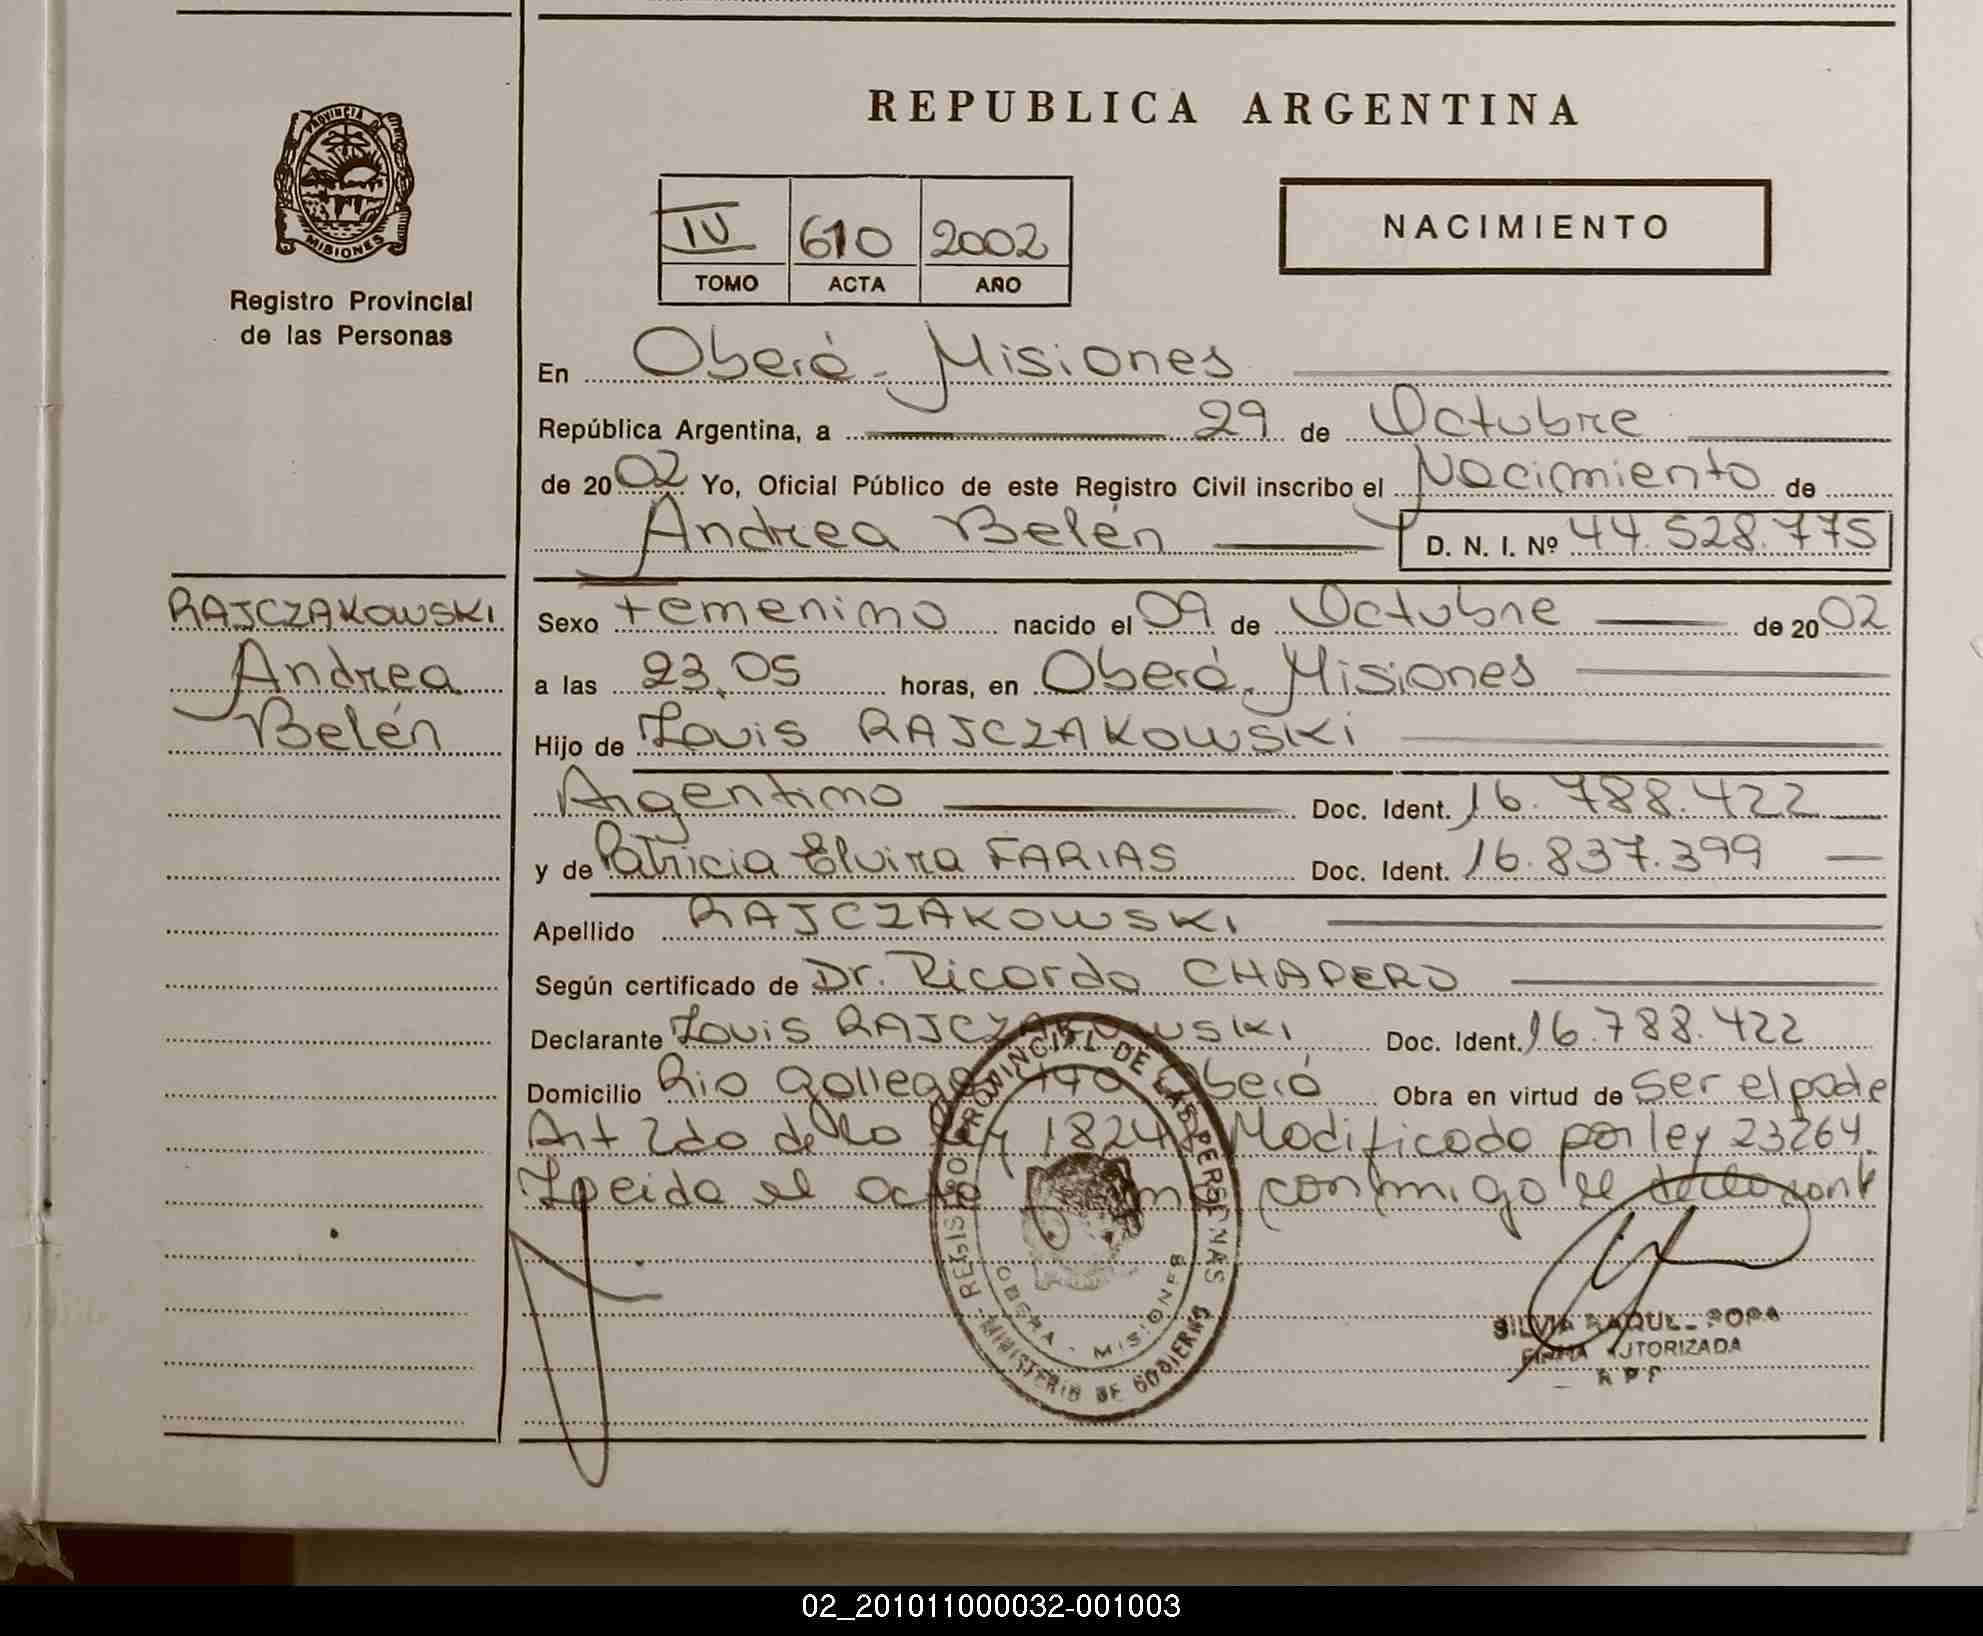 REPUBLICA ARGENTINA
PROVINCIA DE
MISIONES
Registro Provincial
de las Personas
IV 610 2002
TOMO ACTA AÑO
NACIMIENTO
En Oberá - Misiones
República Argentina, a 29 de Octubre
de 2002 Yo, Oficial Público de este Registro Civil inscribo el Nacimiento de
Andrea Belén D. N. I. Nº 44.528.775
RAJCZAKOWSKI
Andrea
Belén
Sexo femenino nacido el 09 de Octubre de 2002
a las 23,05 horas, en Oberá, Misiones
Hijo de Louis RAJCZAKOWSKI
Argentino Doc. Ident. 16.788.422
y de Patricia Elvira FARIAS Doc. Ident. 16.837.399
Apellido RAJCZAKOWSKI
Según certificado de Dr. Ricardo CHAPERO
Declarante Louis RAJCZAKOWSKI Doc. Ident. 16.788.422
Domicilio Rio gallegos Oberá Obra en virtud de ser el padre
Art 2do de la ley 18248 Modificado por ley 23264.
Leida el acta conmigo el
REGISTRO PROVINCIAL DE LAS PERSONAS
OBERA - MISIONES
MINISTERIO DE GOBIERNO
SILVIA RAQUEL
FIRMA AUTORIZADA
02_201011000032-001003